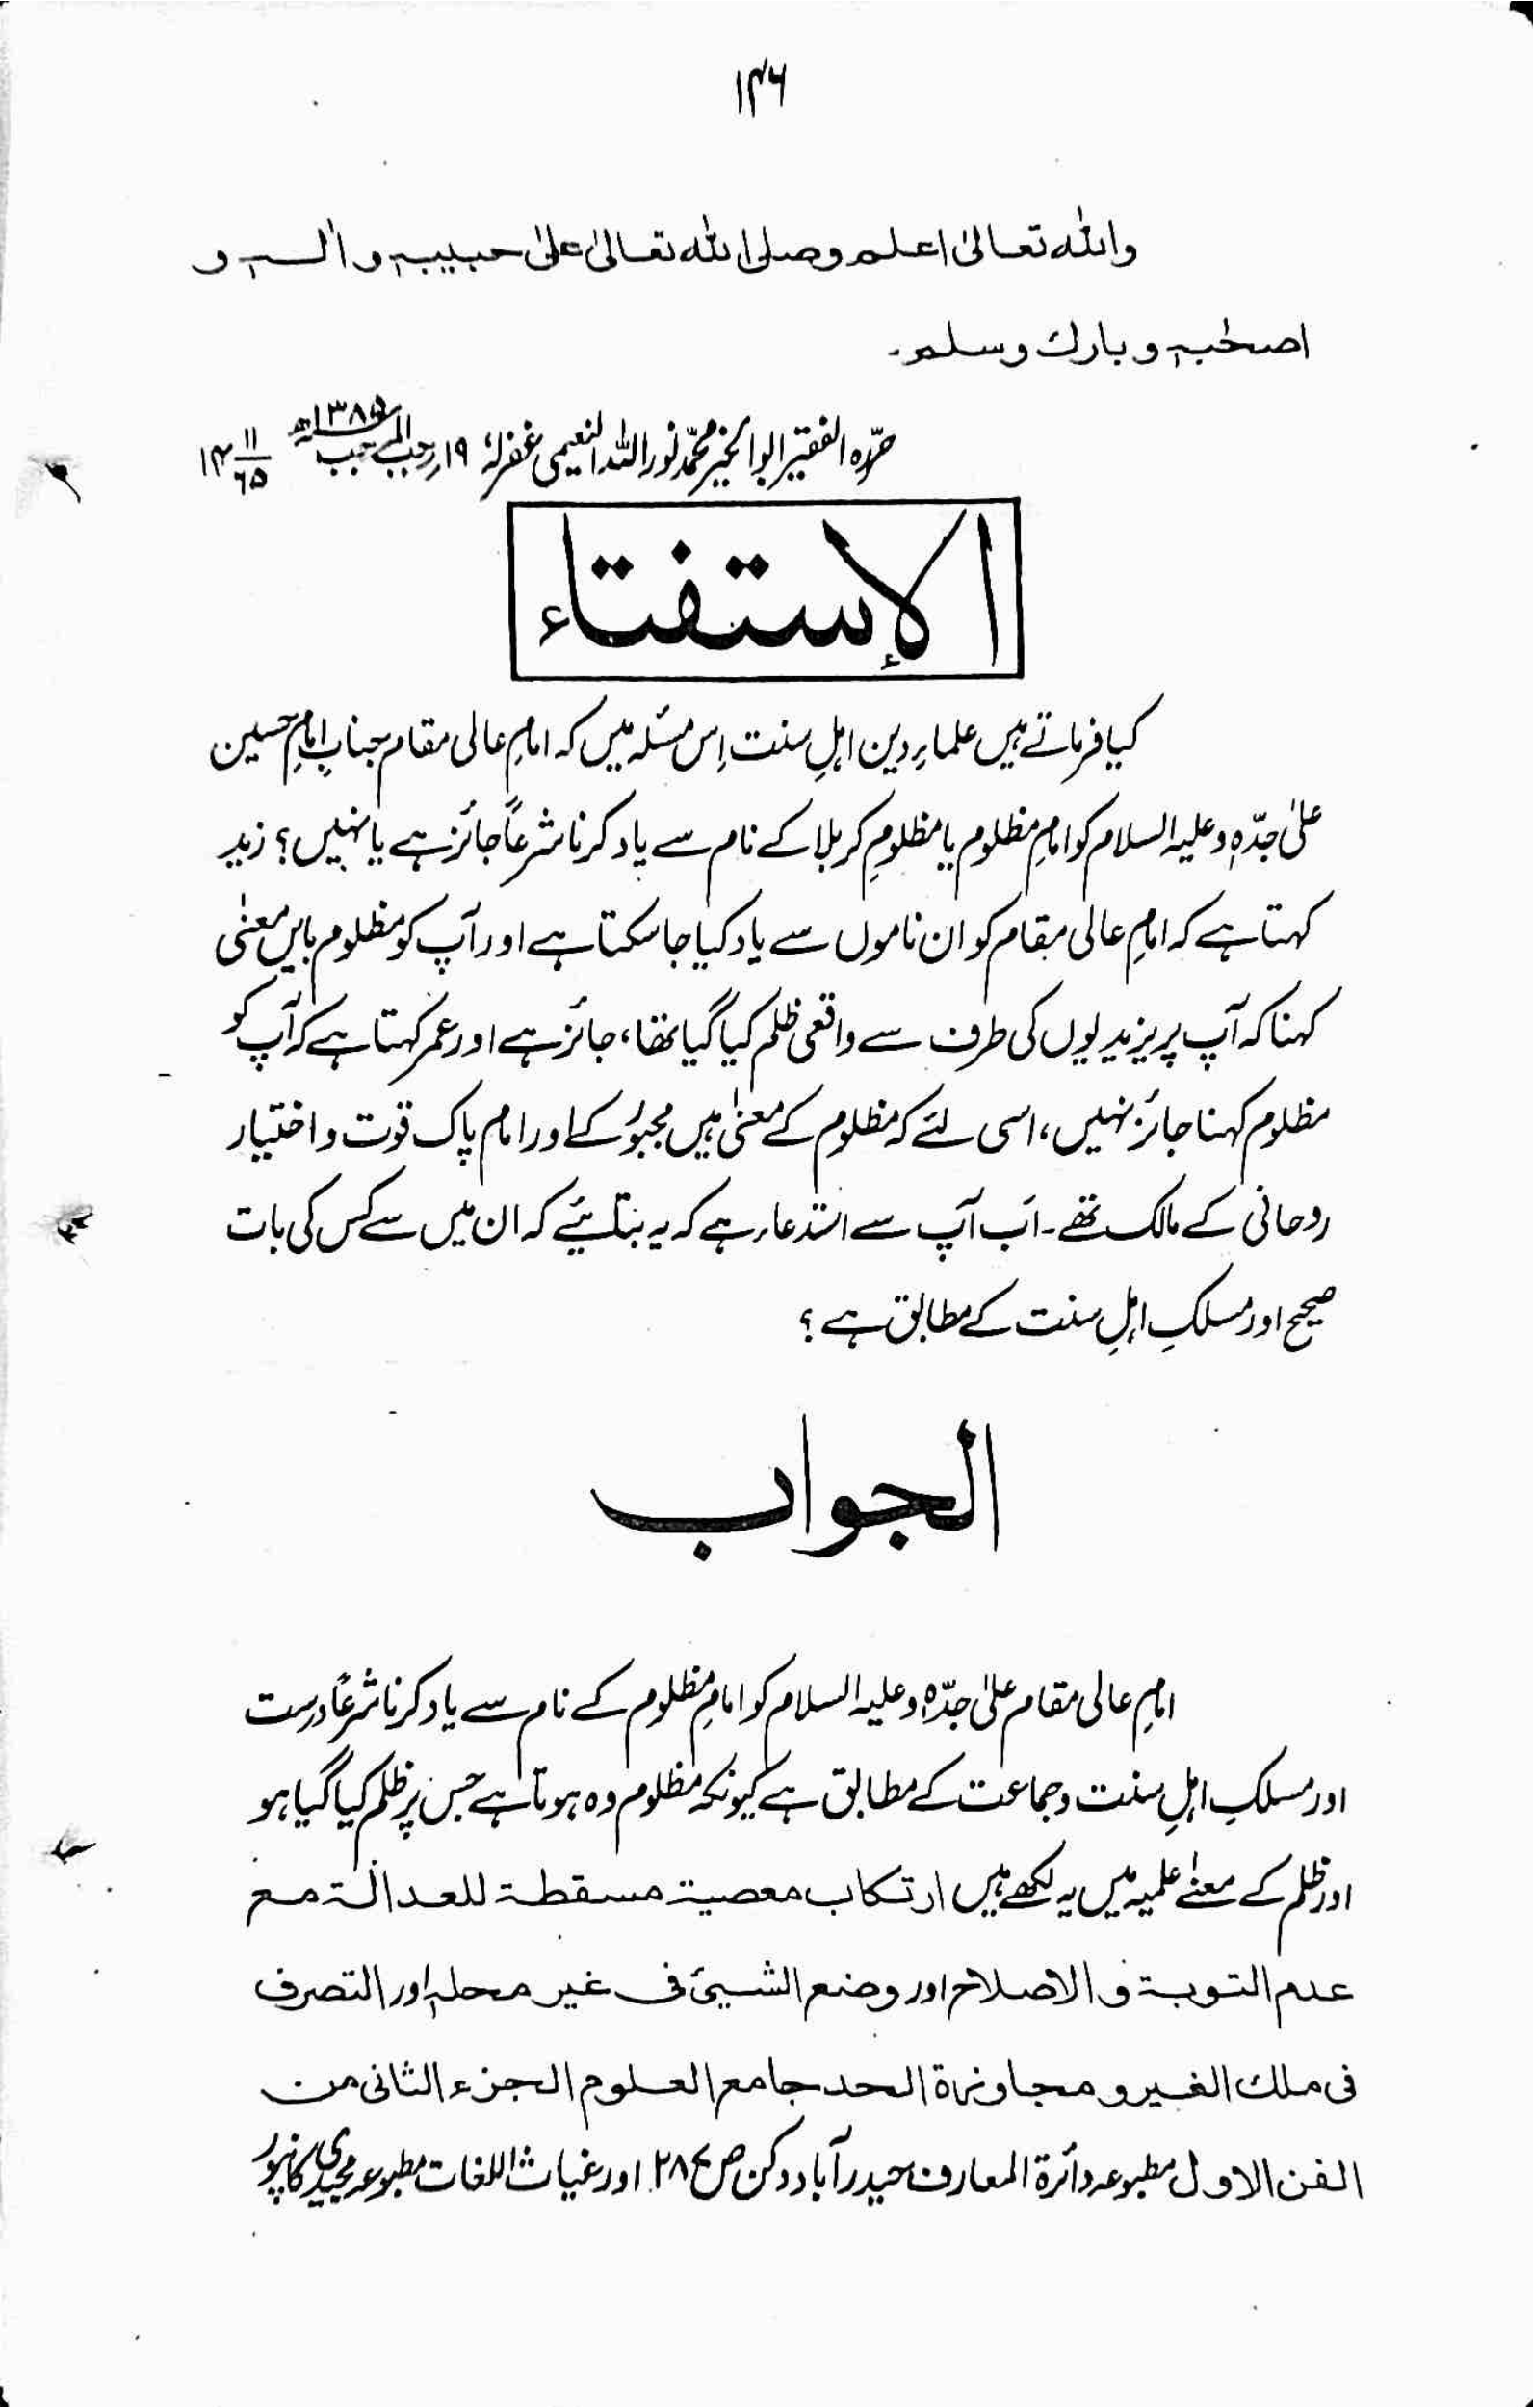 ۱۴۶
واللہ تعالیٰ اعلم وصلی اللہ تعالیٰ علیٰ حبیبہ واٰلہ و
اصحٰبہ وبارك وسلم۔
حرّرہ الفقیر ابوالخیر محمّد نوراللہ النعیمی غفرلہٗ ۱۹ رجب المرجب ۱۳۸۵ھ ۱۴/۱۱/۶۵
الإستفتاء
کیا فرماتے ہیں علماءِ دین اہلِ سنت اِس مسئلہ میں کہ امامِ عالی مقام جنابِ امامِ حسین
علیٰ جدّہٖ وعلیہ السلام کو امامِ مظلوم یا مظلومِ کربلا کے نام سے یاد کرنا شرعاً جائز ہے یا نہیں؟ زید
کہتا ہے کہ امامِ عالی مقام کو ان ناموں سے یاد کیا جا سکتا ہے اور آپ کو مظلوم بایں معنٰی
کہنا کہ آپ پر یزیدیوں کی طرف سے واقعی ظلم کیا گیا تھا، جائز ہے اور عمر کہتا ہے کہ آپ کو
مظلوم کہنا جائز نہیں، اسی لئے کہ مظلوم کے معنٰی ہیں مجبور کے اور امام پاک قوت و اختیار
روحانی کے مالک تھے۔ اَب آپ سے استدعاء ہے کہ یہ بتائیے کہ ان میں سے کس کی بات
صحیح اور مسلکِ اہلِ سنت کے مطابق ہے؟
الجواب
امامِ عالی مقام علیٰ جدّہٖ وعلیہ السلام کو امامِ مظلوم کے نام سے یاد کرنا شرعًا درست
اور مسلکِ اہلِ سنت وجماعت کے مطابق ہے کیونکہ مظلوم وہ ہوتا ہے جس پر ظلم کیا گیا ہو
اور ظلم کے معنٰے علمیہ میں یہ لکھے ہیں ارتکاب معصیۃ مسقطۃ للعدالۃ مع
عدم التوبۃ والاصلاح اور وضع الشیئ فی غیر محلہ اور التصرف
فی ملك الغیر ومجاوزۃ الحد جامع العلوم الجزء الثانی من
الفن الاول مطبوعہ دائرۃ المعارف حیدرآباد دکن ص ۲۸۴ اور غیاث اللغات مطبوعہ مجیدی کانپور